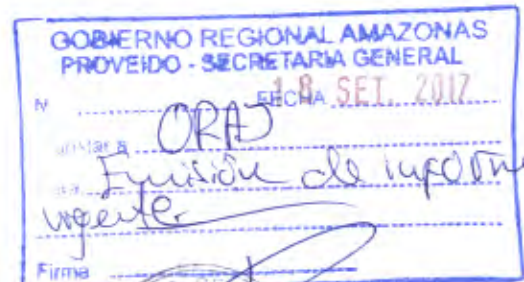 GOBIERNO REGIONAL AMAZONAS
PROVEIDO - SECRETARIA GENERAL
N° FECHA 18 SET. 2017
ORAJ
Emisión de informe
urgente
Firma